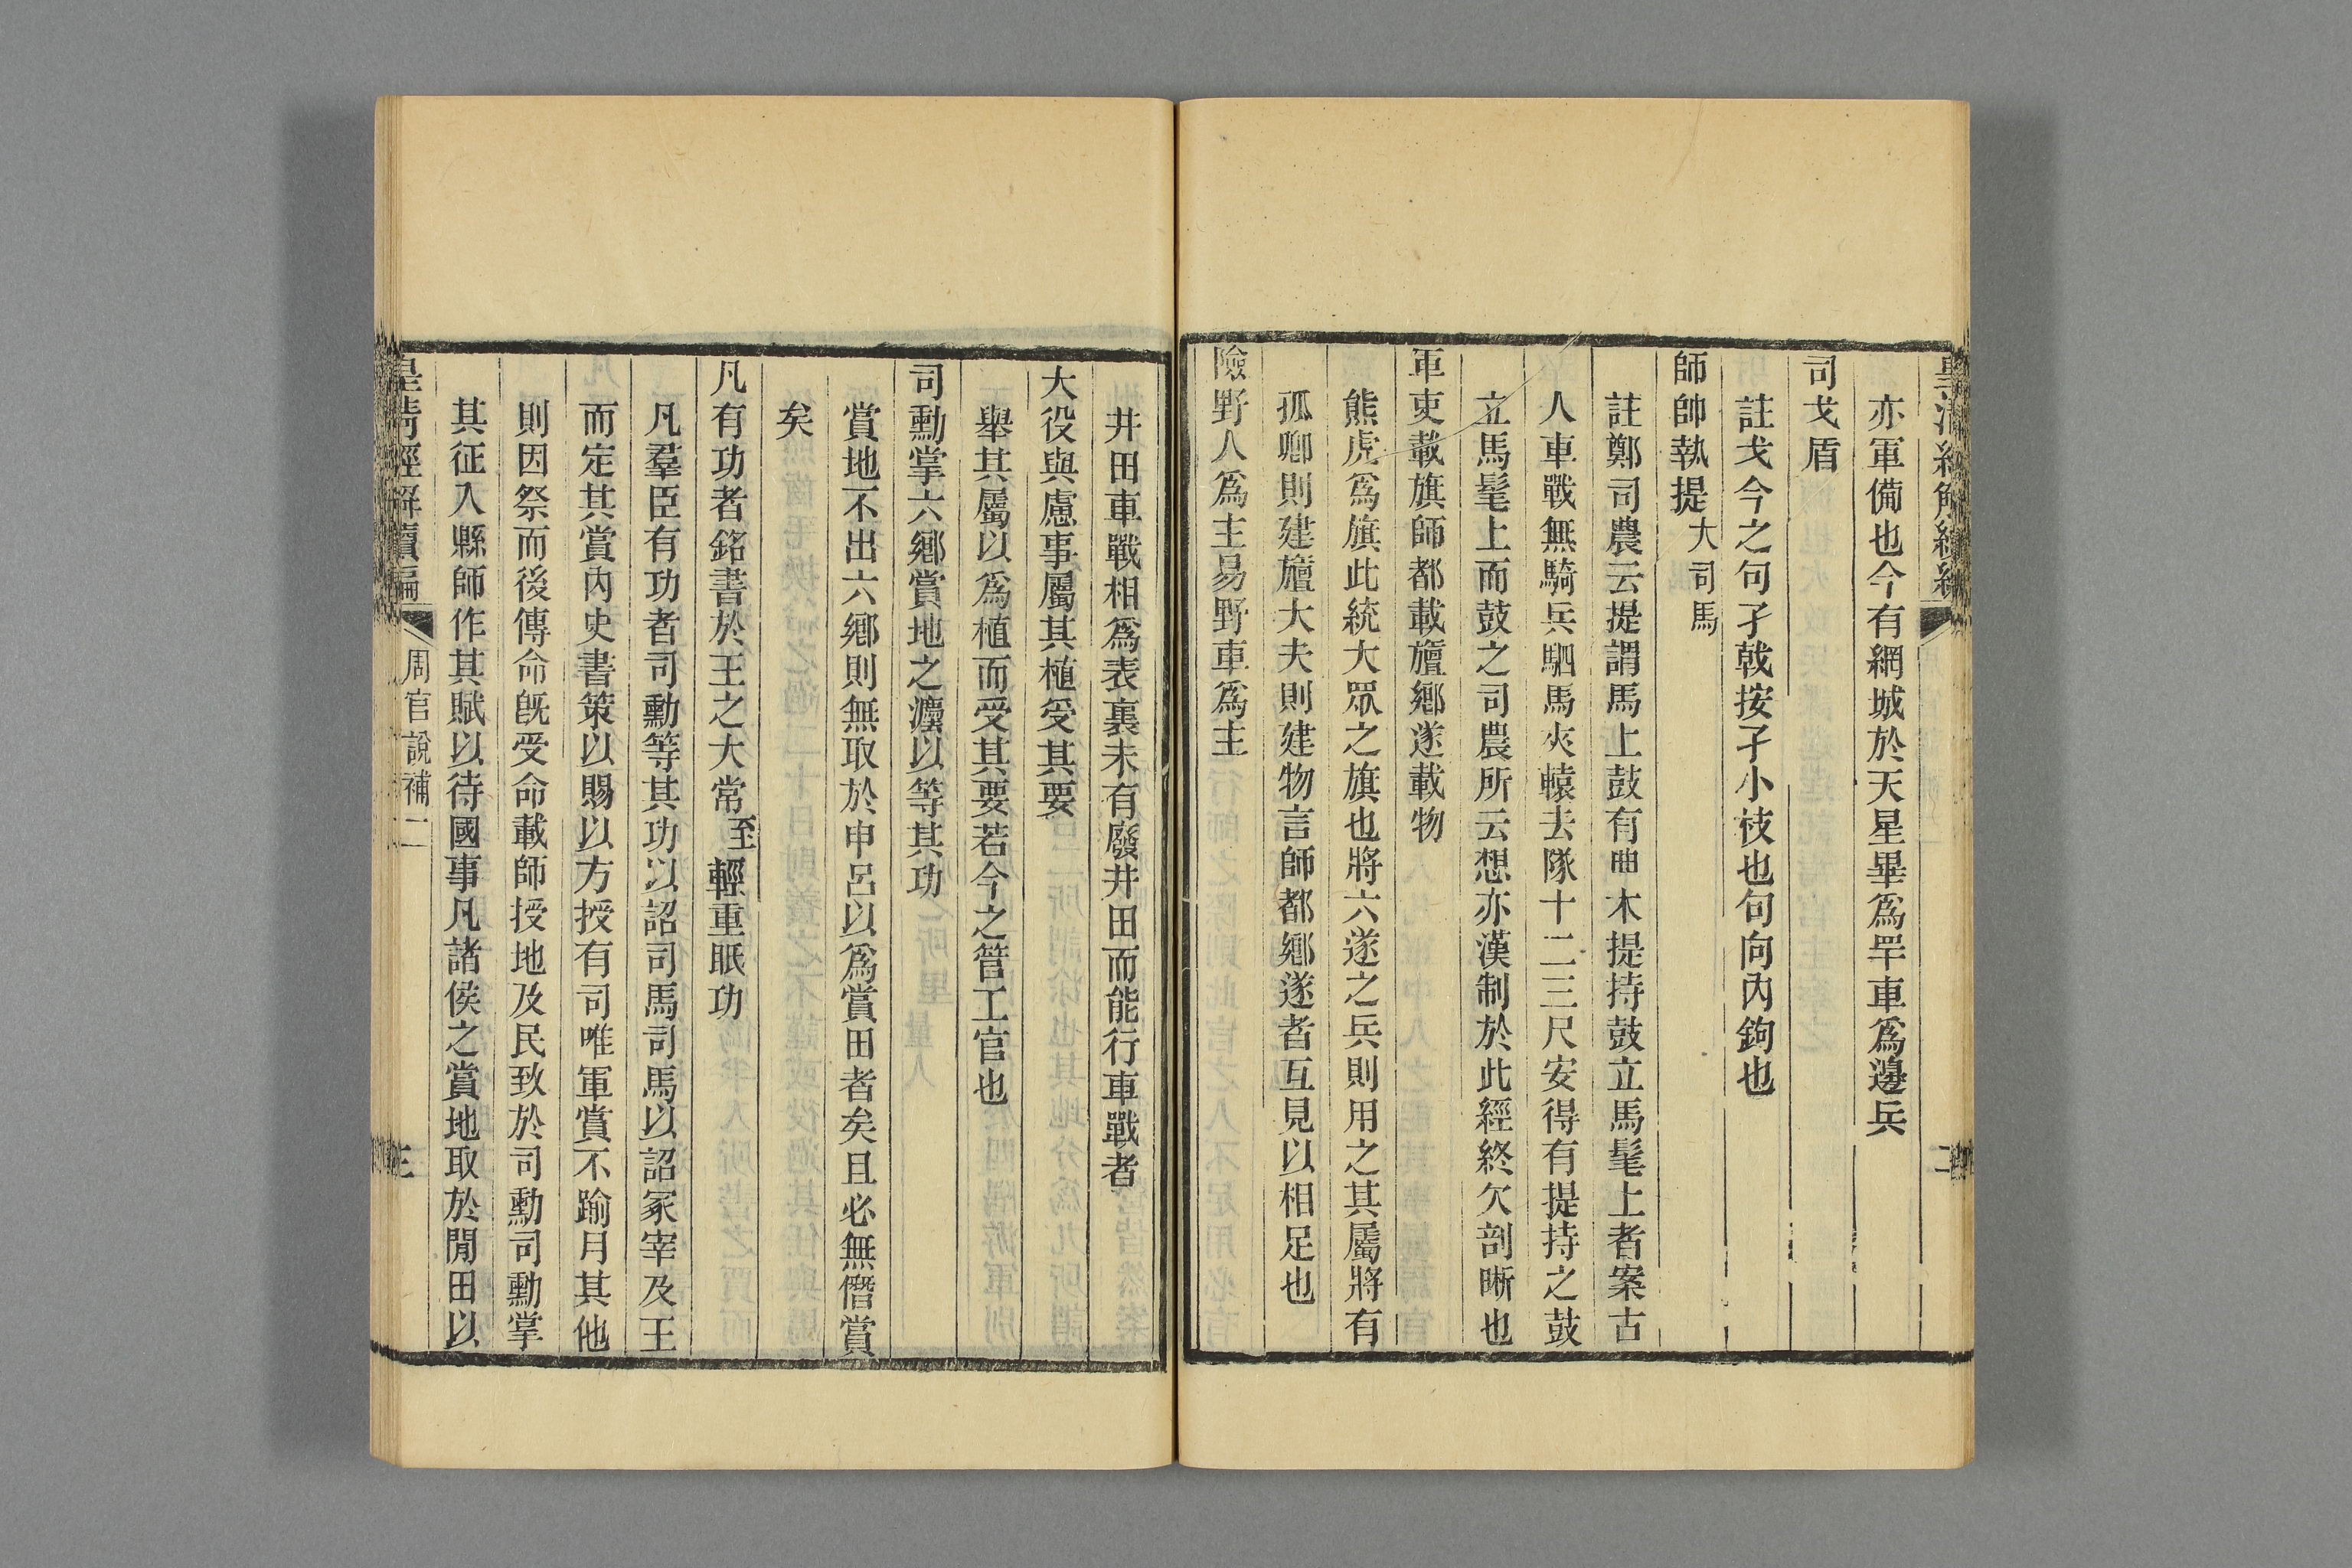 亦軍備也今有網城於天星畢爲䍐車爲邊兵
司戈盾
註戈今之句孑戟按孑小枝也句向內鉤也
師帥執提大司馬
註鄭司農云提謂馬上鼓有曲木提持鼓立馬髦上者案古
人車戰無騎兵駟馬夾轅去隊十二三尺安得有提持之鼓
立馬髦上而鼓之司農所云想亦漢制於此經終欠剖晰也
軍吏載旗師都載旜鄉遂載物
熊虎爲旗此統大眾之旗也將六遂之兵則用之其屬將有
孤卿則建旜大夫則建物言師都鄉遂者互見以相足也
險野人爲主易野車爲主
井田車戰相爲表裏未有廢井田而能行車戰者
大役與慮事屬其植受其要
舉其屬以爲植而受其要若今之管工官也
司勳掌六鄉賞地之灋以等其功
賞地不出六鄉則無取於申呂以爲賞田者矣且必無僭賞
矣
凡有功者銘書於王之大常至輕重眡功
凡羣臣有功者司勳等其功以詔司馬司馬以詔冢宰及王
而定其賞內史書策以賜以方授有司唯軍賞不踰月其他
則因祭而後傳命旣受命載師授地及民致於司勳司勳掌
其征入縣師作其賦以待國事凡諸侯之賞地取於閒田以
皇清經解續編 周官說補二 三